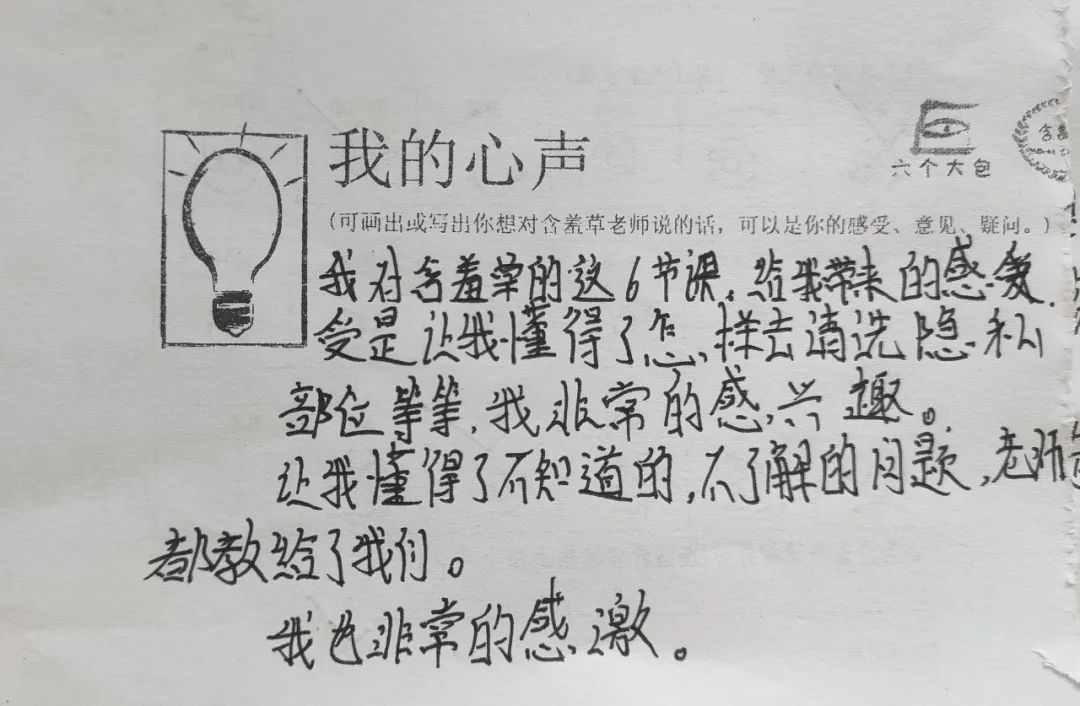 我的心声
六个大包
含羞
(可画出或写出你想对含羞草老师说的话，可以是你的感受、意见、疑问。)
我对含羞草的这6节课，给我带来的感爱
受是让我懂得了怎样去清洗隐私
部位等等，我非常的感兴趣。
让我懂得了不知道的，不了解的问题，老师
都教给了我们。
我也非常的感激。